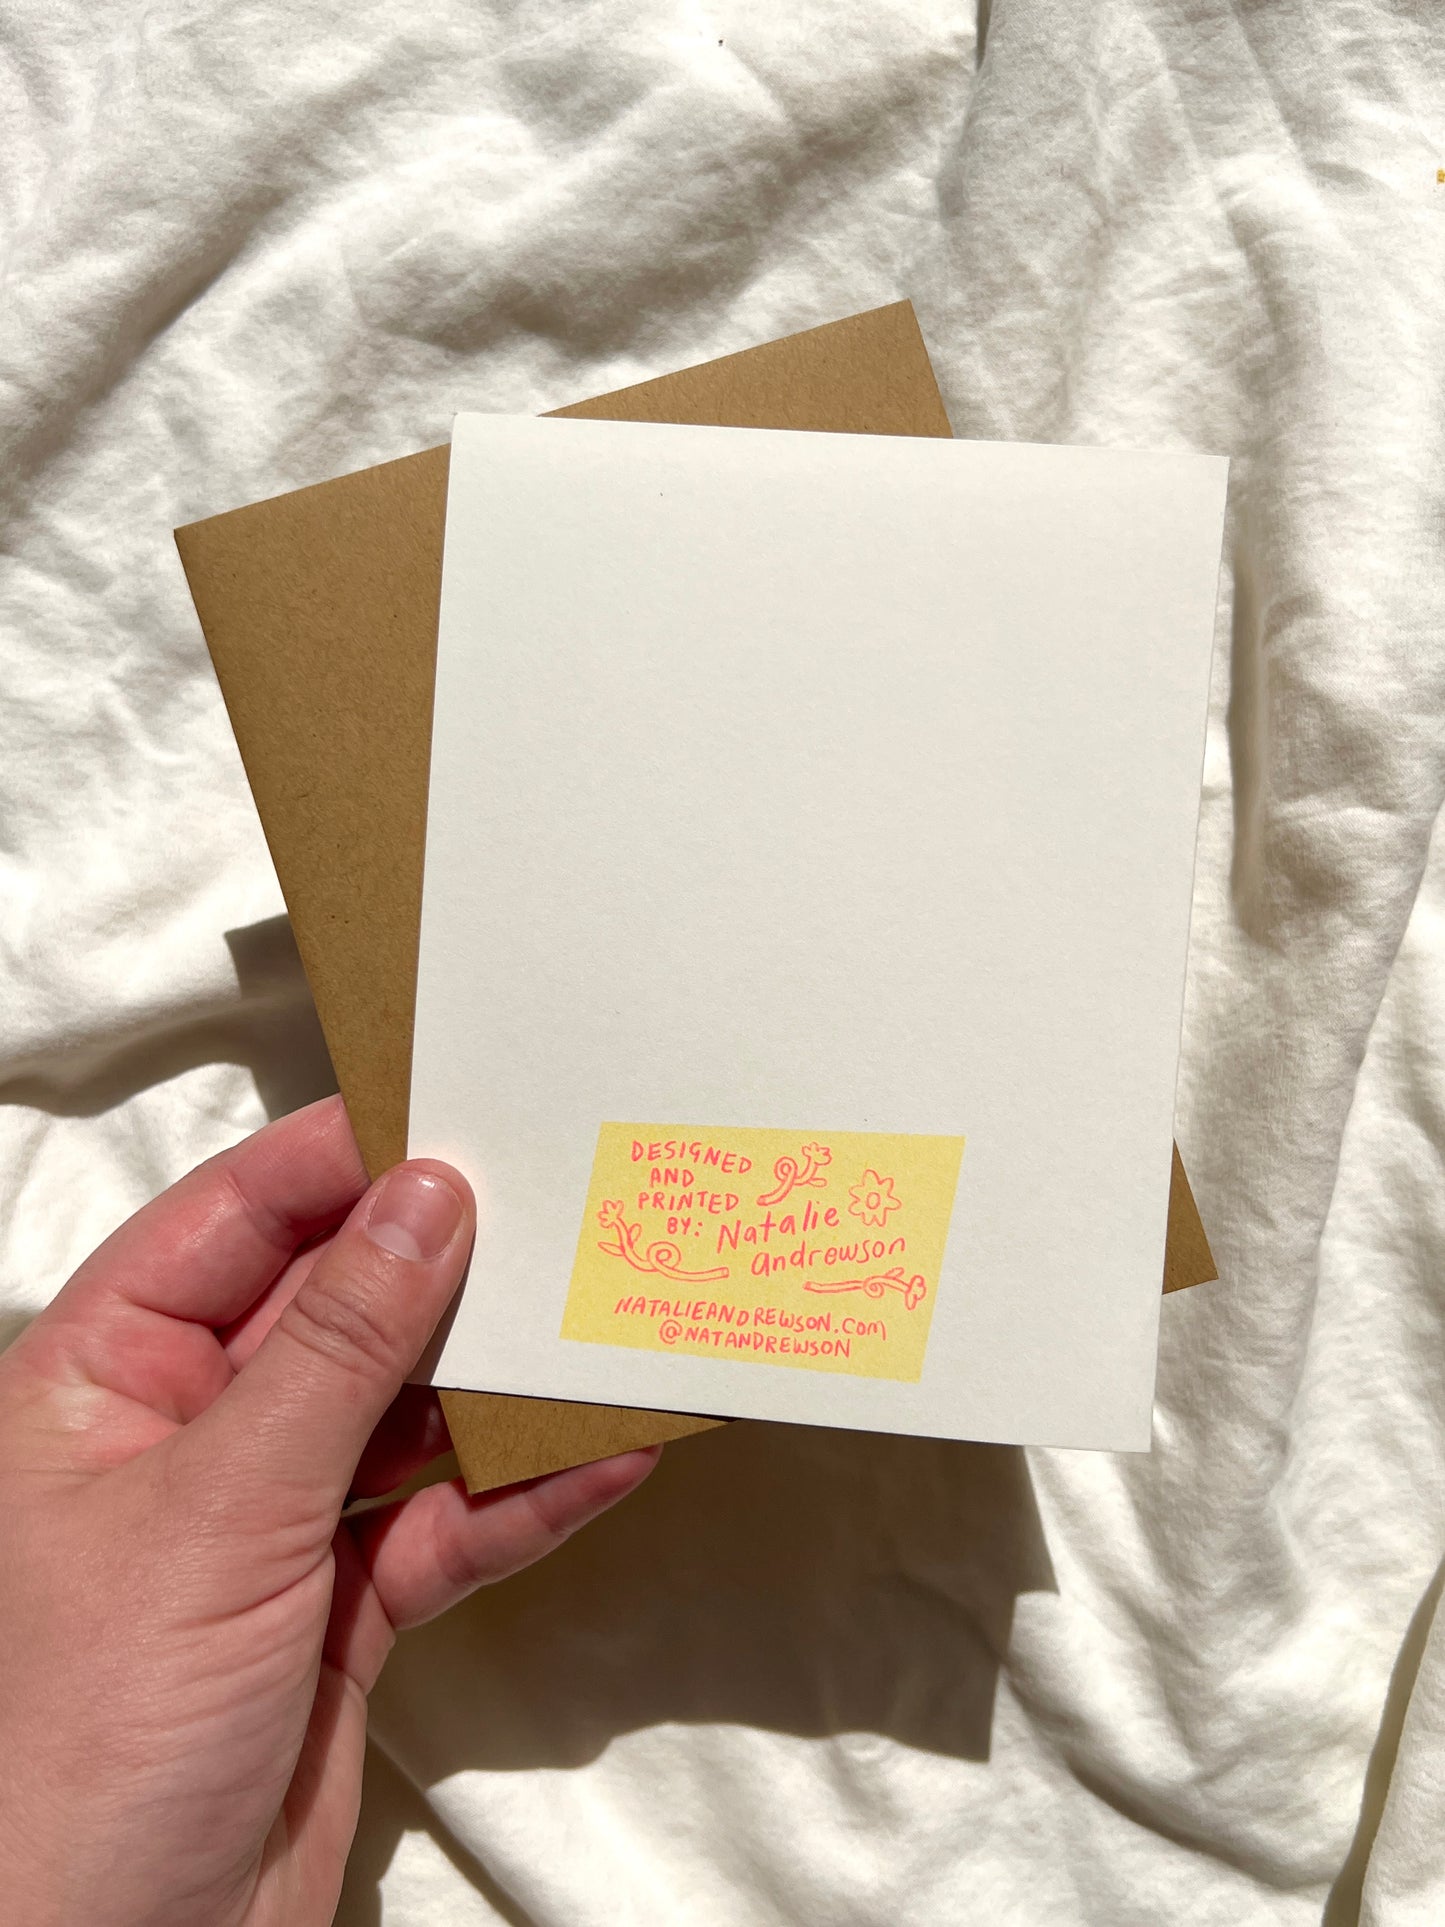 DESIGNED
AND
PRINTED
BY: Natalie
andrewson
NATALIEANDREWSON.COM
@NATANDREWSON